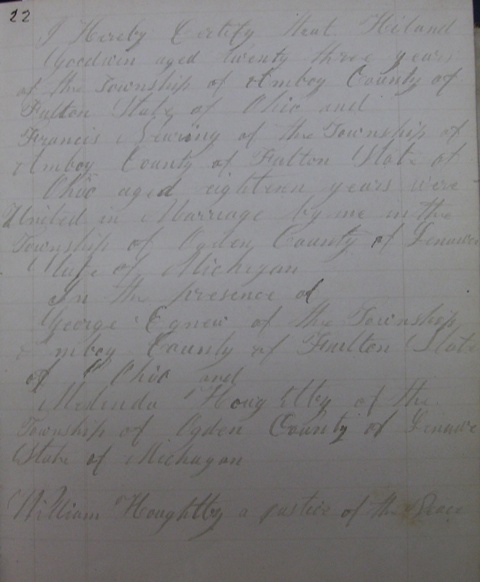 22
I Hereby Certify that Hiland
Goodwin aged twenty three years
of the Township of Amboy County of
Fulton State of Ohio and
Francis of the Township of
Amboy County of Fulton State of
Ohio aged eighteen years were
United in Marriage by me in the
Township of Ogden County of Lenawee
State of Michigan
In the presence of
George Egnew of the Township
Amboy County of Fulton State
of Ohio and
Melinda of the
Township of Ogden County of Lenawee
State of Michigan
William Houghtby a justice of the Peace